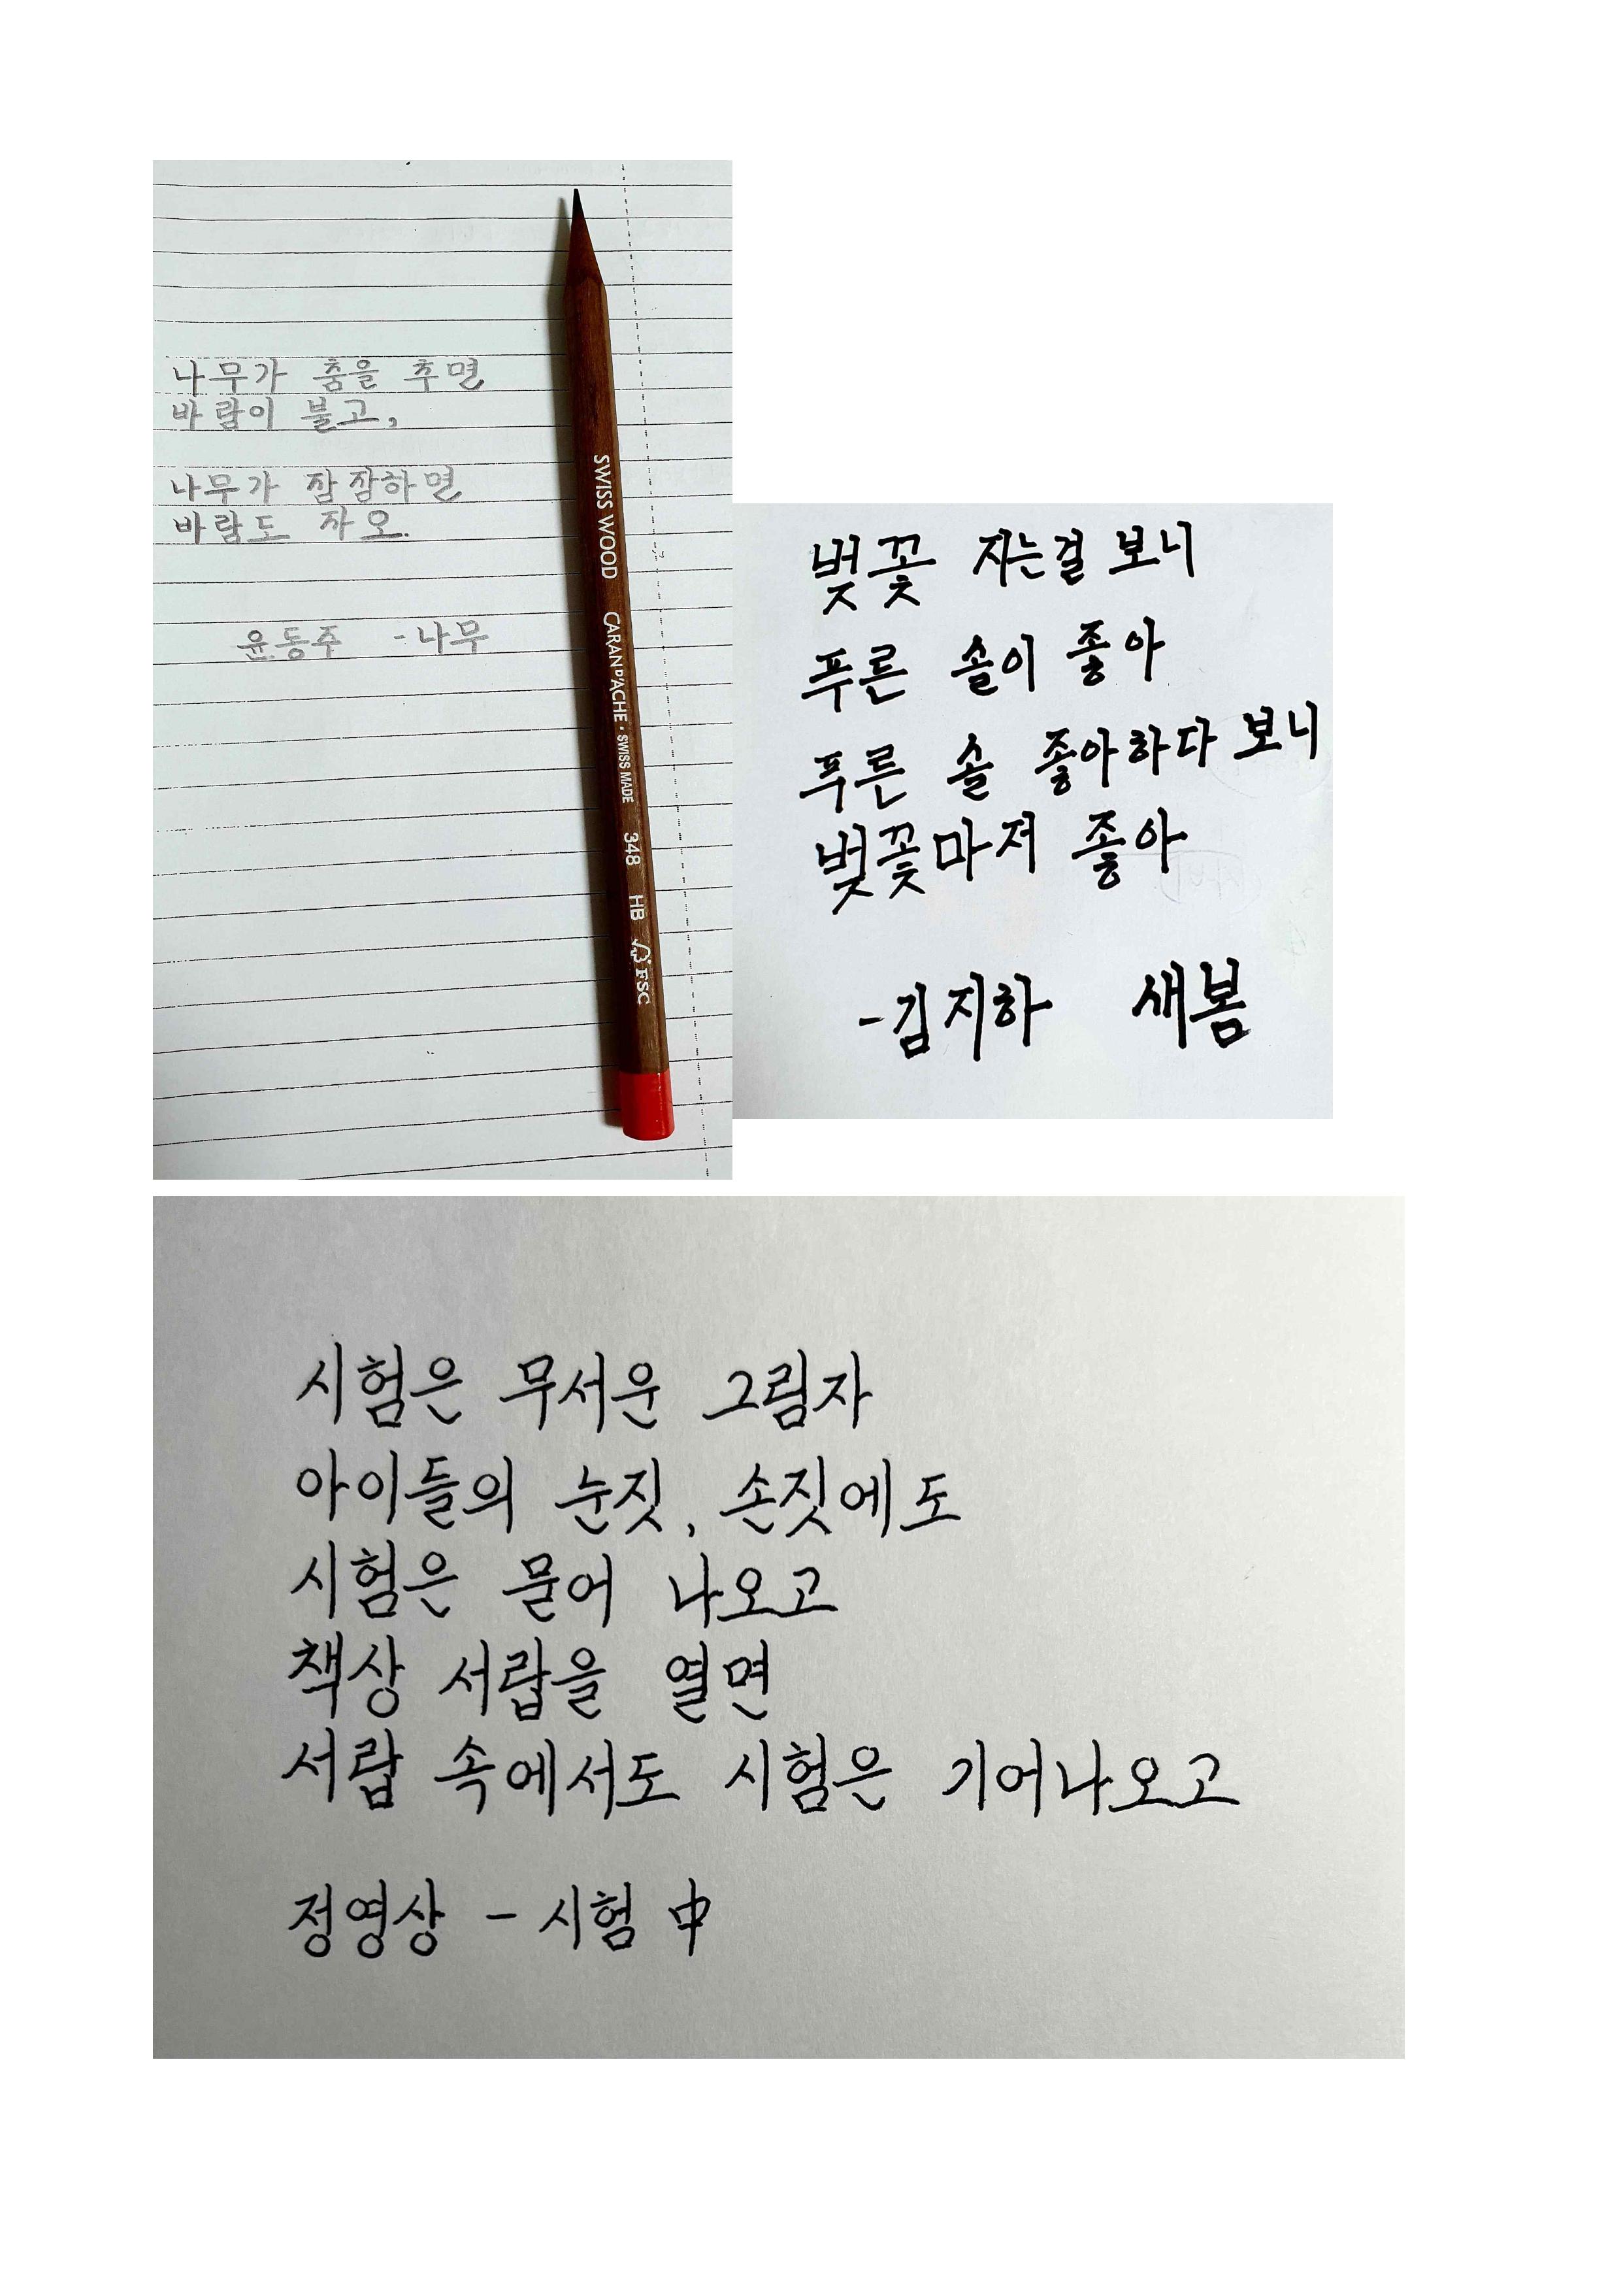 나무가 춤을 추면
바람이 불고,
나무가 잠잠하면
바람도 자오.
윤동주 - 나무
SWISS WOOD CARAN D'ACHE · SWISS MADE 348 HB FSC
벚꽃 지는걸 보니
푸른 솔이 좋아
푸른 솔 좋아하다 보니
벚꽃마저 좋아
- 김지하 새봄
시험은 무서운 그림자
아이들의 눈짓, 손짓에도
시험은 묻어 나오고
책상 서랍을 열면
서랍 속에서도 시험은 기어나오고
정영상 - 시험 中